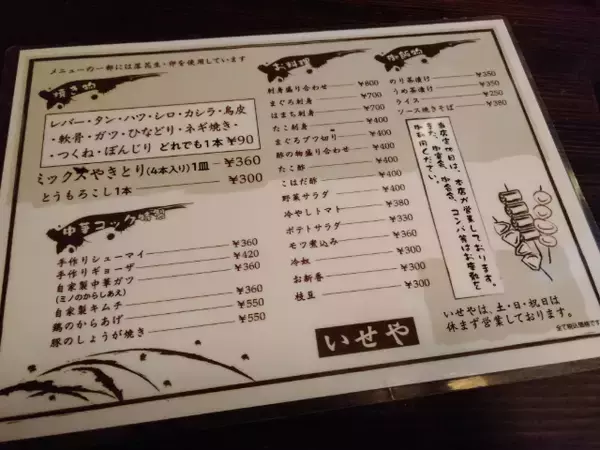 メニューの一部には落花生・卵を使用しています
焼き物
レバー・タン・ハツ・シロ・カシラ・鳥皮
・軟骨・ガツ・ひなどり・ネギ焼き・
・つくね・ぼんじり どれでも1本 ¥90
ミックスやきとり(4本入り)1皿 ¥360
とうもろこし1本 ¥300
中華コック特製
手作りシューマイ ¥360
手作りギョーザ ¥420
自家製中華ガツ ¥360
(ミノのからしあえ)
自家製キムチ ¥360
鶏のからあげ ¥550
豚のしょうが焼き ¥550
お料理
刺身盛り合わせ ¥800
まぐろ刺身 ¥700
はまち刺身 ¥700
たこ刺身 ¥400
まぐろブツ切り ¥400
酢の物盛り合わせ ¥400
たこ酢 ¥400
こはだ酢 ¥400
野菜サラダ ¥400
冷やしトマト ¥400
ポテトサラダ ¥330
モツ煮込み ¥360
冷奴 ¥300
お新香 ¥300
枝豆 ¥300
御飯物
のり茶漬け ¥350
うめ茶漬け ¥350
ライス ¥250
ソース焼きそば ¥380
当店定休日は、本店が営業しております。
また、御宴会、御会食、コンパ等はお座敷を
御利用ください。
いせやは、土・日・祝日は
休まず営業しております。
全て税込価格です
いせや